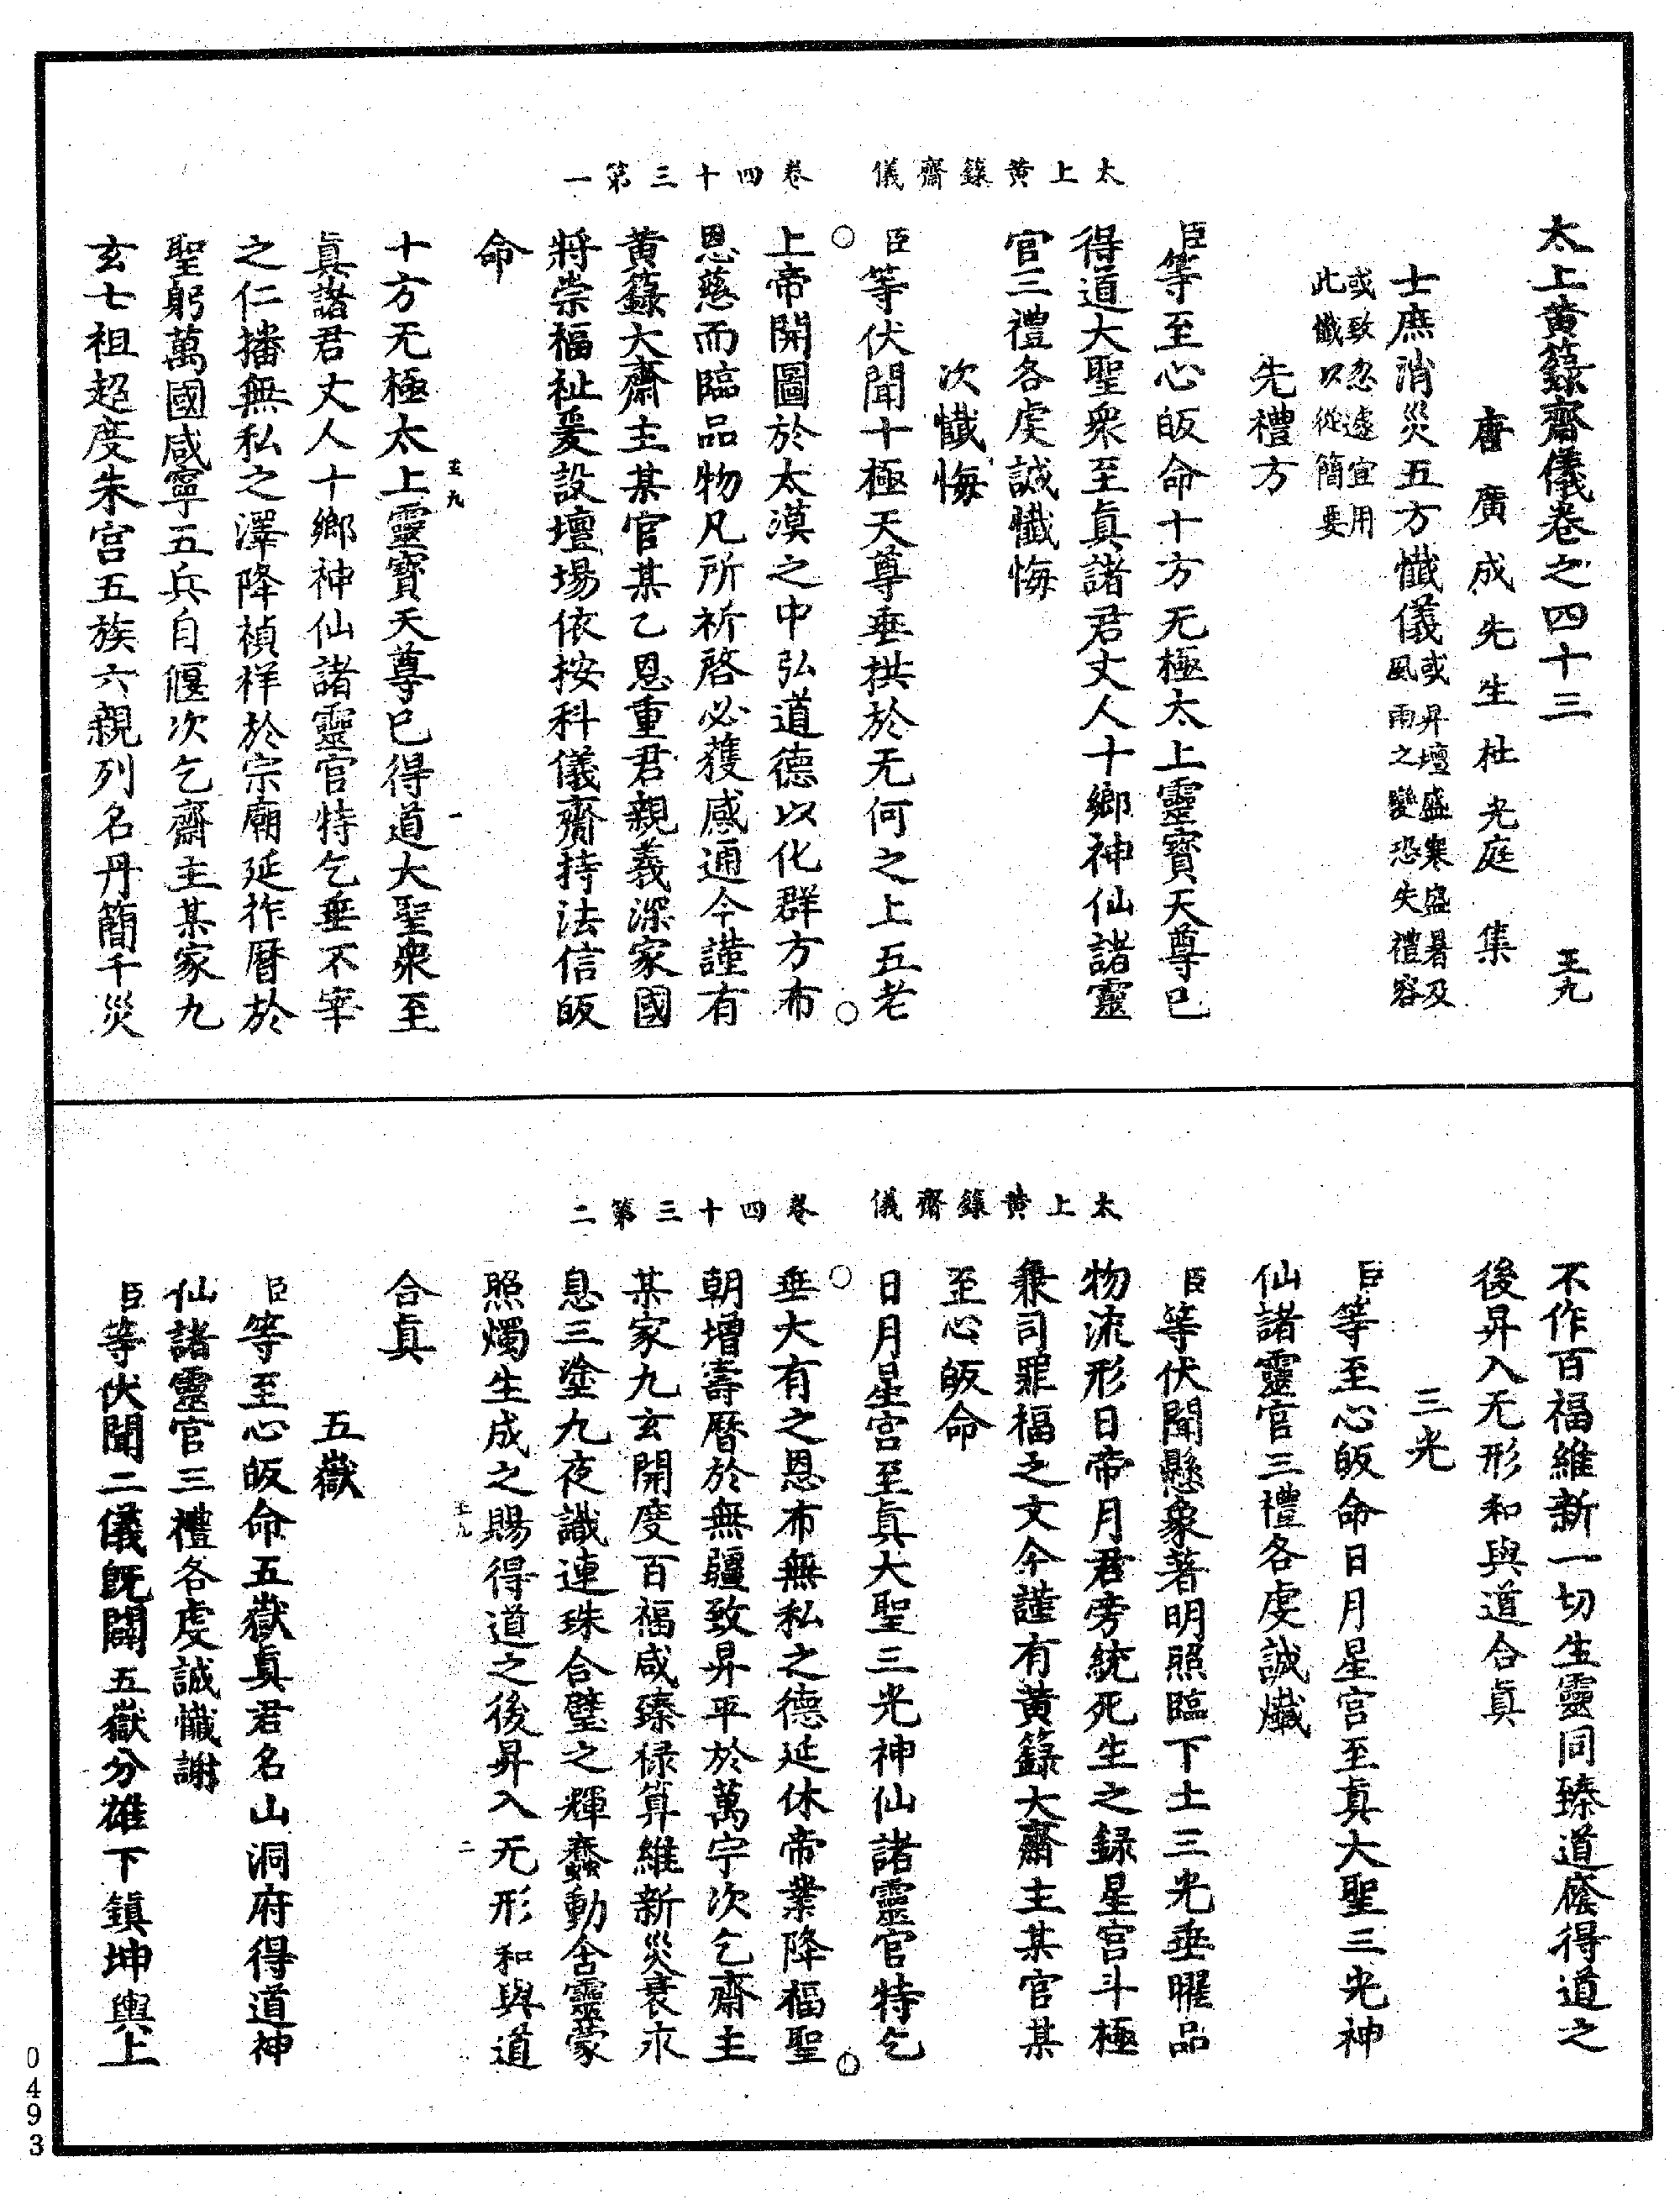 太上黃籙齋儀卷之四十三 王九
唐廣成先生杜光庭集
士庶消災五方懺儀或昇壇盛寒盛暑及風雨之變恐失禮容
或致忽遽宜用此懺以從簡要
先禮方
臣等至心皈命十方无極太上靈寶天尊已
得道大聖衆至眞諸君丈人十鄉神仙諸靈
官三禮各虔誠懺悔
次懺悔
臣等伏聞十極天尊垂拱於无何之上五老
太上黃籙齋儀 卷四十三第一
上帝開圖於太漠之中弘道德以化群方布
恩慈而臨品物凡所祈啓必獲感通今謹有
黃籙大齋主某官某乙恩重君親義深家國
將崇福祉爰設壇場依按科儀齋持法信皈
命
王九 一
十方无極太上靈寶天尊已得道大聖衆至
眞諸君丈人十鄉神仙諸靈官特乞垂不宰
之仁播無私之澤降禎祥於宗廟延祚曆於
聖躬萬國咸寧五兵自偃次乞齋主某家九
玄七祖超度朱宮五族六親列名丹簡千災
不作百福維新一切生靈同臻道廕得道之
後昇入无形和與道合眞
三光
臣等至心皈命日月星宮至眞大聖三光神
仙諸靈官三禮各虔誠懺
臣等伏聞懸象著明照臨下土三光垂曜品
物流形日帝月君旁統死生之錄星宮斗極
兼司罪福之文今謹有黃籙大齋主某官某
至心皈命
日月星宮至眞大聖三光神仙諸靈官特乞
太上黃籙齋儀 卷四十三第二
垂大有之恩布無私之德延休帝業降福聖
朝增壽曆於無疆致昇平於萬宇次乞齋主
某家九玄開度百福咸臻祿算維新災衰永
息三塗九夜識連珠合璧之輝蠢動含靈蒙
照燭生成之賜得道之後昇入无形和與道
王九 二
合眞
五嶽
臣等至心皈命五嶽眞君名山洞府得道神
仙諸靈官三禮各虔誠懺謝
臣等伏聞二儀旣闢五嶽分雄下鎮坤輿上
0493